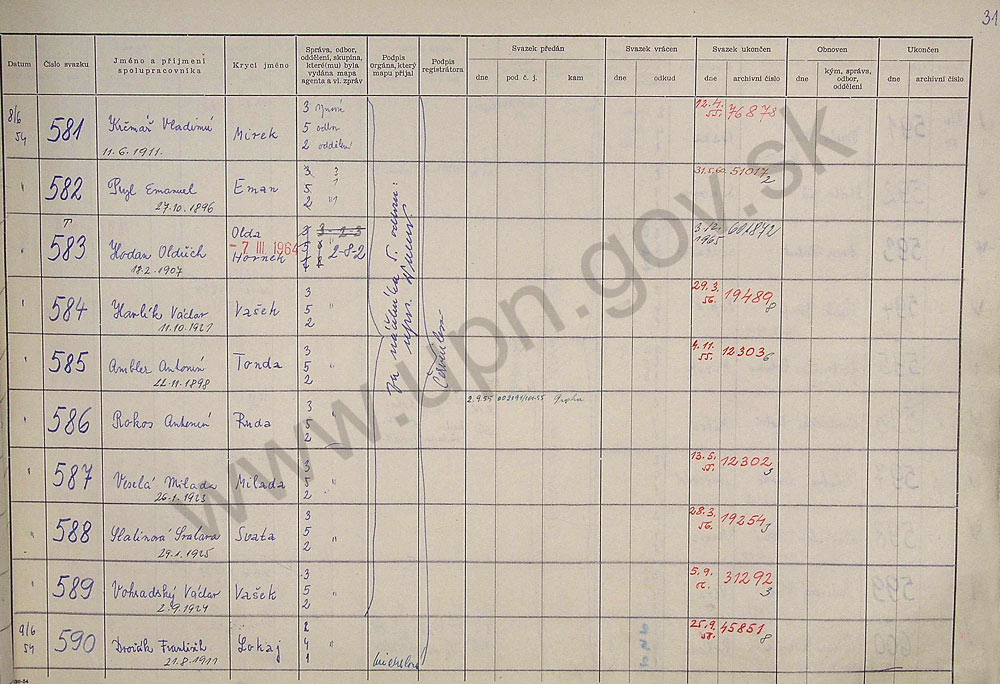 31
Datum
Číslo svazku
Jméno a příjmení
spolupracovníka
Krycí jméno
Správa, odbor,
oddělení, skupina,
které(mu) byla
vydána mapa
agenta a vl. zpráv
Podpis
orgána, který
mapu přijal
Podpis
registrátora
Svazek předán
dne
pod č. j.
kam
Svazek vrácen
dne
odkud
Svazek ukončen
dne
archivní číslo
Obnoven
dne
kým, správa,
odbor,
oddělení
Ukončen
dne
archivní číslo
8/6
54
581
Krčmář Vladimír
11.6.1911.
Mirek
3
5 odbor
2 oddělení
12.4.
55.
76878
582
Pryl Emanuel
27.10.1896
Eman
3
5
2
31.5.60
51017
2
583
Hodan Oldřich
18.2.1907
Olda
- 7 III 1964
Horněk
3-2-3
2-8-2
3.12.
1965
601872
584
Havlík Václav
11.10.1921
Vašek
3
5
2
29.3.
56.
19489
8
585
Ambler Antonín
22.11.1898
Tonda
3
5
2
4.11.
55.
12303
6
586
Rokos Antonín
Ruda
3
5
2
2.9.55
Praha
587
Veselá Milada
26.1.1923
Milada
3
5
2
13.5.
55.
12302
3
588
29.1.1925
Svata
3
5
2
28.3.
56.
19254
3
589
Vohradský Václav
2.9.1924
Vašek
3
5
2
5.9.
56.
31292
3
9/6
54
590
Dvořák František
21.8.1911
Lokaj
2
4
1
25.9.
58.
45851
8
Za náčelníka 5. odboru:
www.upn.gov.sk